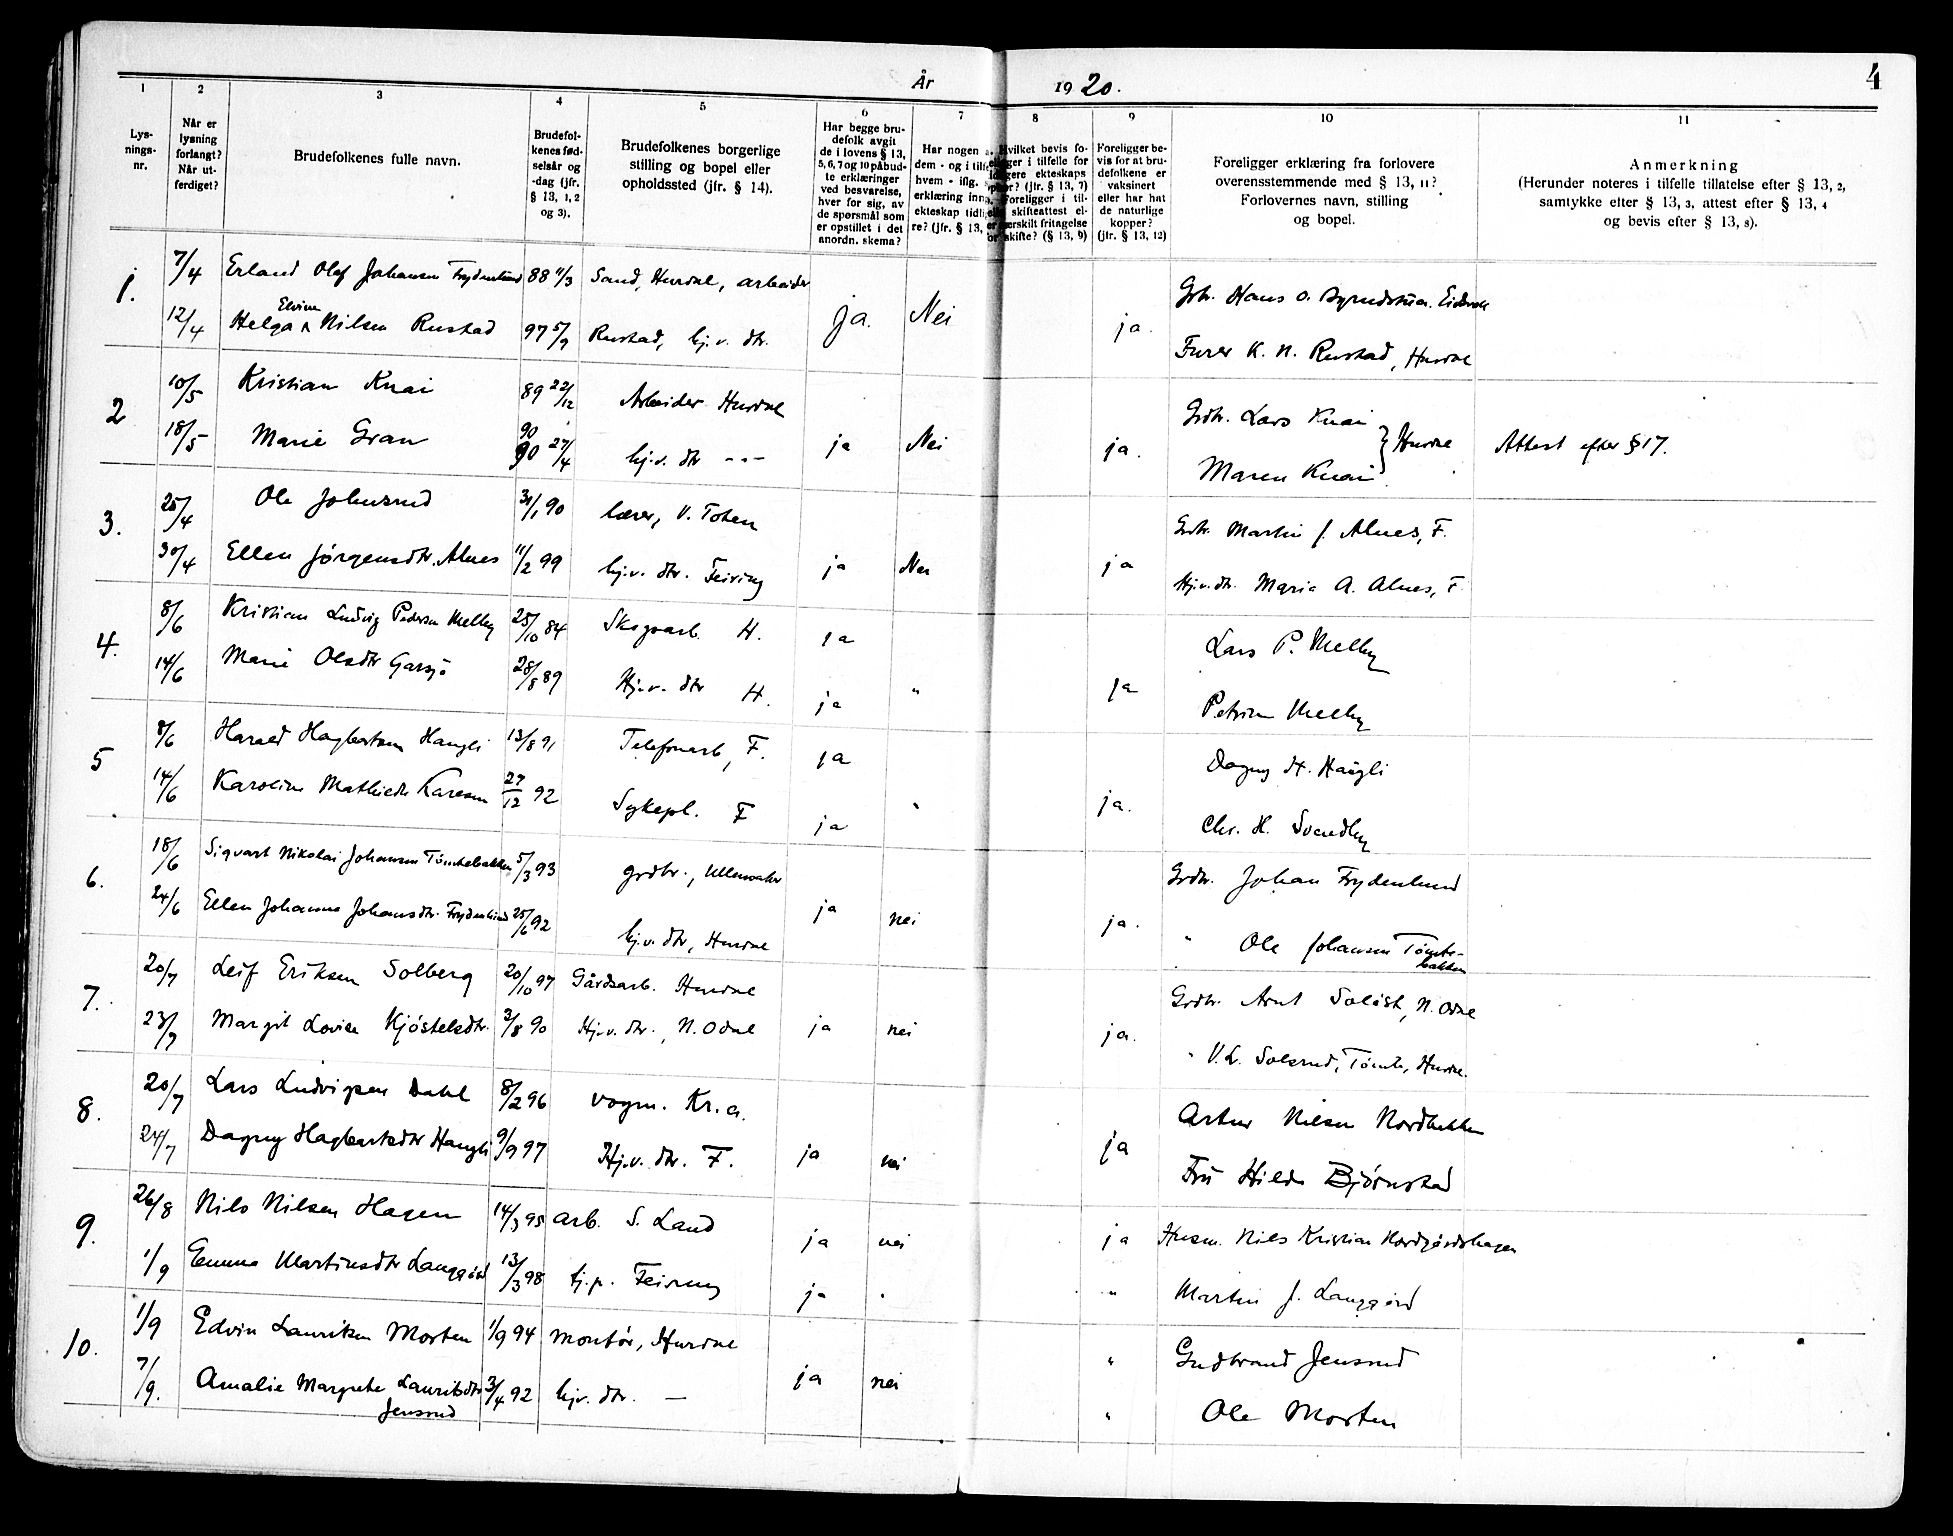 År 1920. 4
1 2 3 4 5 6 7 8 9 10 11
Lys-
nings-
nr.
Når er
lysning
forlangt?
Når ut-
ferdiget?
Brudefolkenes fulle navn.
Brudefol-
kenes fød-
selsår og
-dag (jfr.
§ 13, 1, 2
og 3).
Brudefolkenes borgerlige
stilling og bopel eller
opholdssted (jfr. § 14).
Har begge bru-
defolk avgit
de i lovens § 13,
5, 6, 7 og 10 påbud-
te erklæringer
ved besvarelse,
hver for sig, av
de spørsmål som
er opstillet i det
anordn. skema?
Har nogen a
dem - og i tilf
hvem - iflg.
erklæring inng
ekteskap tidlig
re? (jfr. § 13,
Hvilket bevis fo-
ligger i tilfelle for
gere ekteskaps
ophør? (jfr. § 13, 7)
Foreligger i til-
skifteattest el-
særskilt fritagelse
for skifte? (§ 13, 9)
Foreligger be-
vis for at bru-
defolkene er
vaksinert
eller har hat
de naturlige
kopper?
(jfr. § 13, 12)
Foreligger erklæring fra forlovere
overensstemmende med § 13, 11?
Forlovernes navn, stilling
og bopel.
Anmerkning
(Herunder noteres i tilfelle tillatelse efter § 13, 2,
samtykke efter § 13, 3, attest efter § 13, 4
og bevis efter § 13, 8).
1. 7/4 Erland Olaf Johansen Frydenlund 88 11/3 Sand, Hurdal, arbeider Grbr. Hans O. Eidsvold
12/4 Helga Elvine Nilsen Rustad 97 5/9 Rustad, hj.v. dtr. ja. Nei ja. Furer K. N. Rustad, Hurdal
2 10/5 Kristian Knai 89 22/12 Arbeider Hurdal Grdbr. Lars Knai
18/5 Marie Gran 90 90 27/4 hj.v. dtr --- ja Nei ja. Maren Knai } Hurdal Attest efter § 17.
3. 25/4 Ole Johnsrud 31/1 90 lærer, V. Toten Grdbr. Martin J. Alnes, F.
30/4 Ellen Jørgensdtr. Alnes 11/2 99 hj.v. dtr. Feiring ja Nei ja Hj.v. dtr. Maria A. Alnes, F.
4. 8/6 Kristian Ludvig Pedersen Melby 25/10 84 Skogsarb. H. ja Lars P. Melby
14/6 Marie Olsdtr Garsjø 28/8 89 Hj.v. dtr H. ja " ja Petrine Melby
5 8/6 Harald Hagbartsen Haugli 13/8 91 Telefonarb, F. ja Dagny H. Haugli
14/6 Karoline Mathisdtr Larsen 27/12 92 Sykepl. F ja " ja. Chr. H. Svendby
6. 18/6 Sigvart Nikolai Johansen Tømtebakken 5/3 93 grdbr., Ullensaker Grdbr. Johan Frydenlund
24/6 Ellen Johanne Johansdtr. Frydenlund 25/6 92 hj.v. dtr, Hurdal ja nei ja. " Ole Johansen Tømte-
bakken
7. 20/7 Leif Eriksen Solberg 20/10 97 Gårdsarb. Hurdal Grdbr. Arnt N. Odal
23/7 Margit Lovise Kjøstelsdtr. 3/8 90 Hj.v. dtr., N. Odal ja nei ja. " V. L. Solsrud, Tømte, Hurdal.
8. 20/7 Lars Ludvigsen Dahl 8/2 96 vogm. Kr.a. Artur Nilsen Nordbakken
24/7 Dagny Hagbartsdtr Haugli 9/9 97 Hj.v. dtr. F. ja nei ja Fru Hilda Bjørnstad
9. 26/8 Nils Nilsen Hagen 14/3 95 arb. S. Land ja nei ja Husm. Nils Kristian Nordgårdshagen
1/9 Emma Martinsdtr Langgård 13/3 98 tj.p. Feiring ja " " Martin J. Langgård
10. 1/9 Edvin Lauritsen Morten 1/9 94 Montør, Hurdal " Gudbrand Jensrud
7/9. Amalie Margrete Lauritsdtr 3/4 92 hjv. dtr. — ja nei " Ole Morten
Jensrud